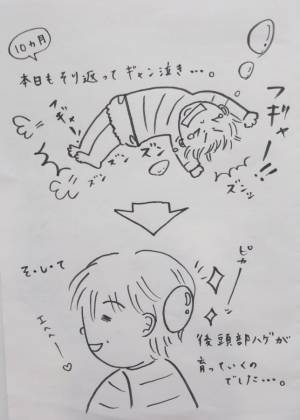 10ヵ月
本日もそり返ってギャン泣き…。
フギャー!!
フギャ
ズン
ズン
ズン
ズンッ
そ・し・て
ピカーン
エヘヘー♡
後頭部ハゲが
育っていくの
でした…。